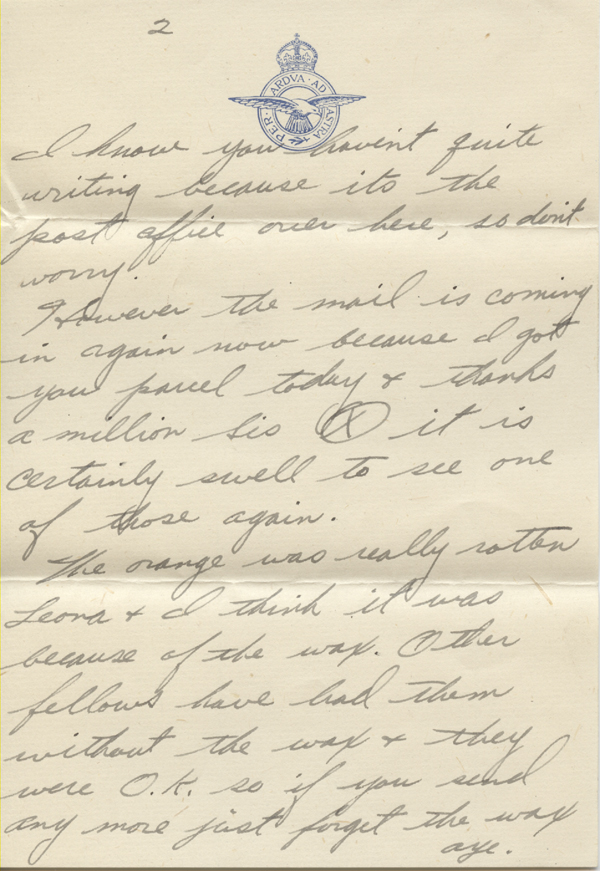 2
PER · ARDVA · AD ASTRA
I know you havent quite
writing because its the
post office over here, so dont
worry.
However the mail is coming
in again now because I got
you parcel today & thanks
a million Sis (X) it is
certainly swell to see one
of those again.
The orange was really rotten
Leona & I think it was
because of the wax. Other
fellows have had them
without the wax & they
were O.K. so if you send
any more just forget the wax
aye.